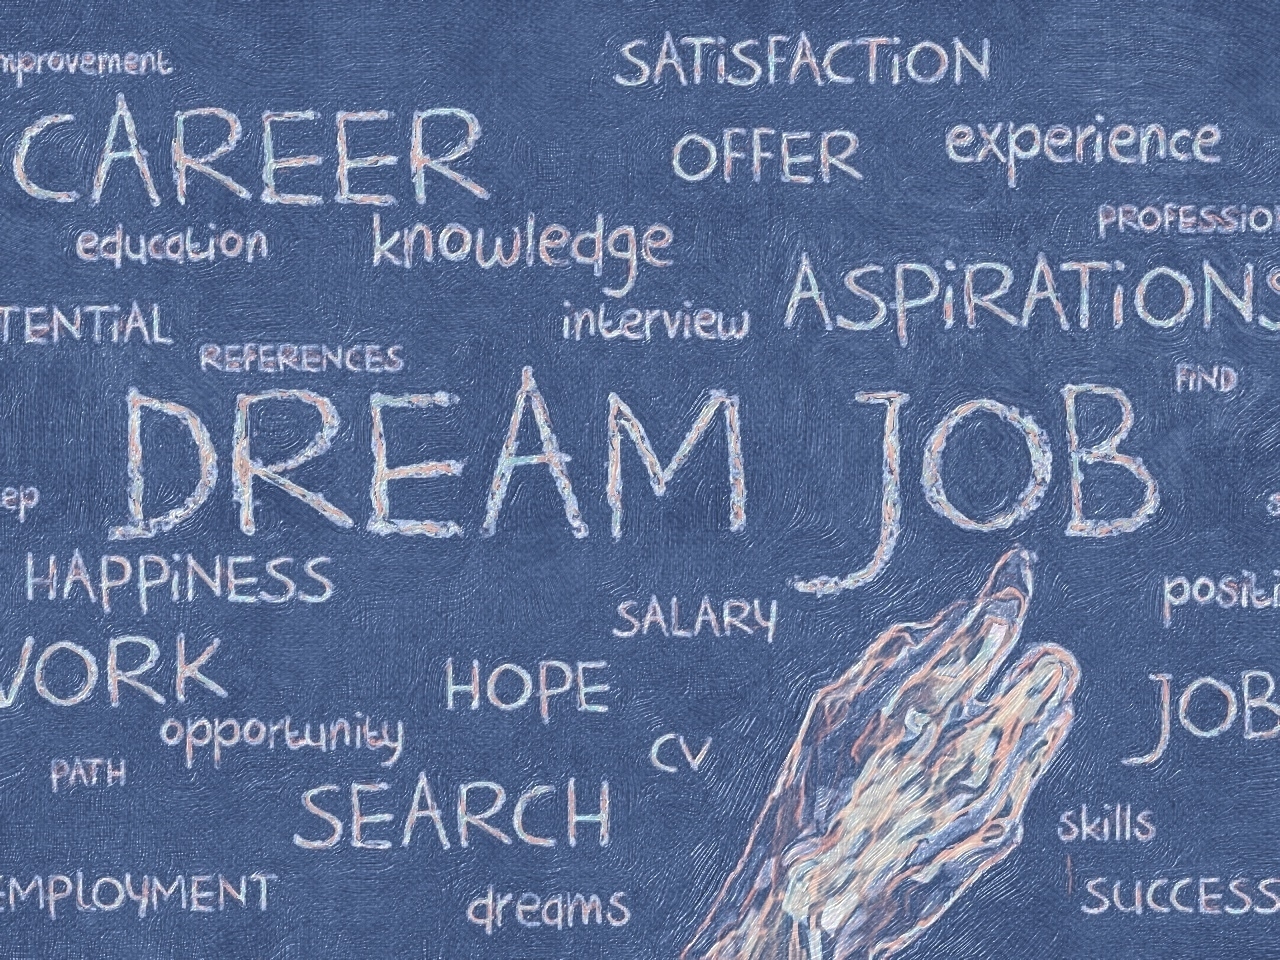 mprovement
SATiSFACTiON
CAREER
OFFER
experience
PROFESSIO
education
knowledge
ASPiRATiONS
TENTiAL
interview
REFERENCES
FiND
DREAM JOB
ep
HAPPiNESS
positi
SALARY
WORK
HOPE
JOB
opportunity
CV
PATH
SEARCH
skills
EMPLOYMENT
dreams
SUCCESS